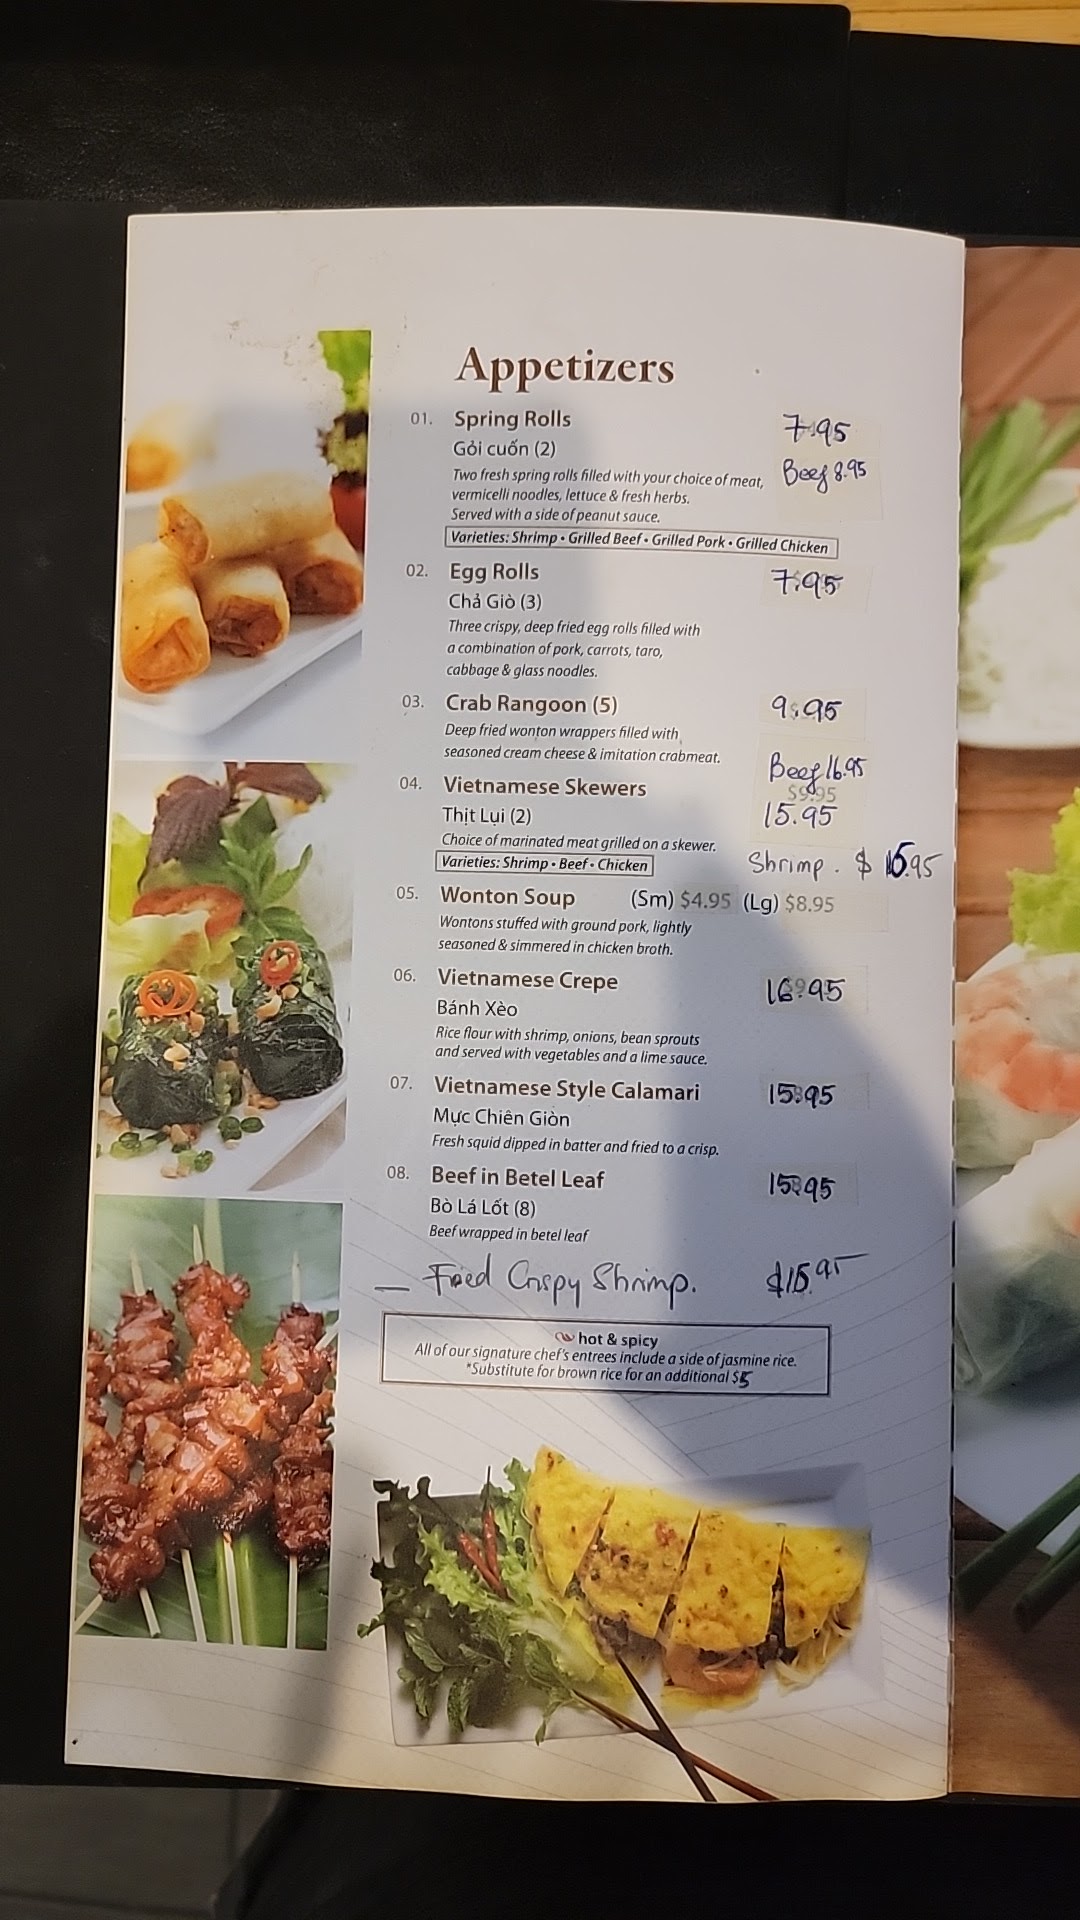 Appetizers
01. Spring Rolls 7.95
Gỏi cuốn (2)
Beef 8.95
Two fresh spring rolls filled with your choice of meat,
vermicelli noodles, lettuce & fresh herbs.
Served with a side of peanut sauce.
Varieties: Shrimp • Grilled Beef • Grilled Pork • Grilled Chicken
02. Egg Rolls 7.95
Chả Giò (3)
Three crispy, deep fried egg rolls filled with
a combination of pork, carrots, taro,
cabbage & glass noodles.
03. Crab Rangoon (5) 9.95
Deep fried wonton wrappers filled with
seasoned cream cheese & imitation crabmeat.
Beef 16.95
04. Vietnamese Skewers $9.95
Thịt Lụi (2) 15.95
Choice of marinated meat grilled on a skewer.
Varieties: Shrimp • Beef • Chicken
Shrimp. $ 16.95
05. Wonton Soup (Sm) $4.95 (Lg) $8.95
Wontons stuffed with ground pork, lightly
seasoned & simmered in chicken broth.
06. Vietnamese Crepe 16.95
Bánh Xèo
Rice flour with shrimp, onions, bean sprouts
and served with vegetables and a lime sauce.
07. Vietnamese Style Calamari 15.95
Mực Chiên Giòn
Fresh squid dipped in batter and fried to a crisp.
08. Beef in Betel Leaf 15.95
Bò Lá Lốt (8)
Beef wrapped in betel leaf
— Fried Crispy Shrimp. $15.95
hot & spicy
All of our signature chef's entrees include a side of jasmine rice.
*Substitute for brown rice for an additional $5